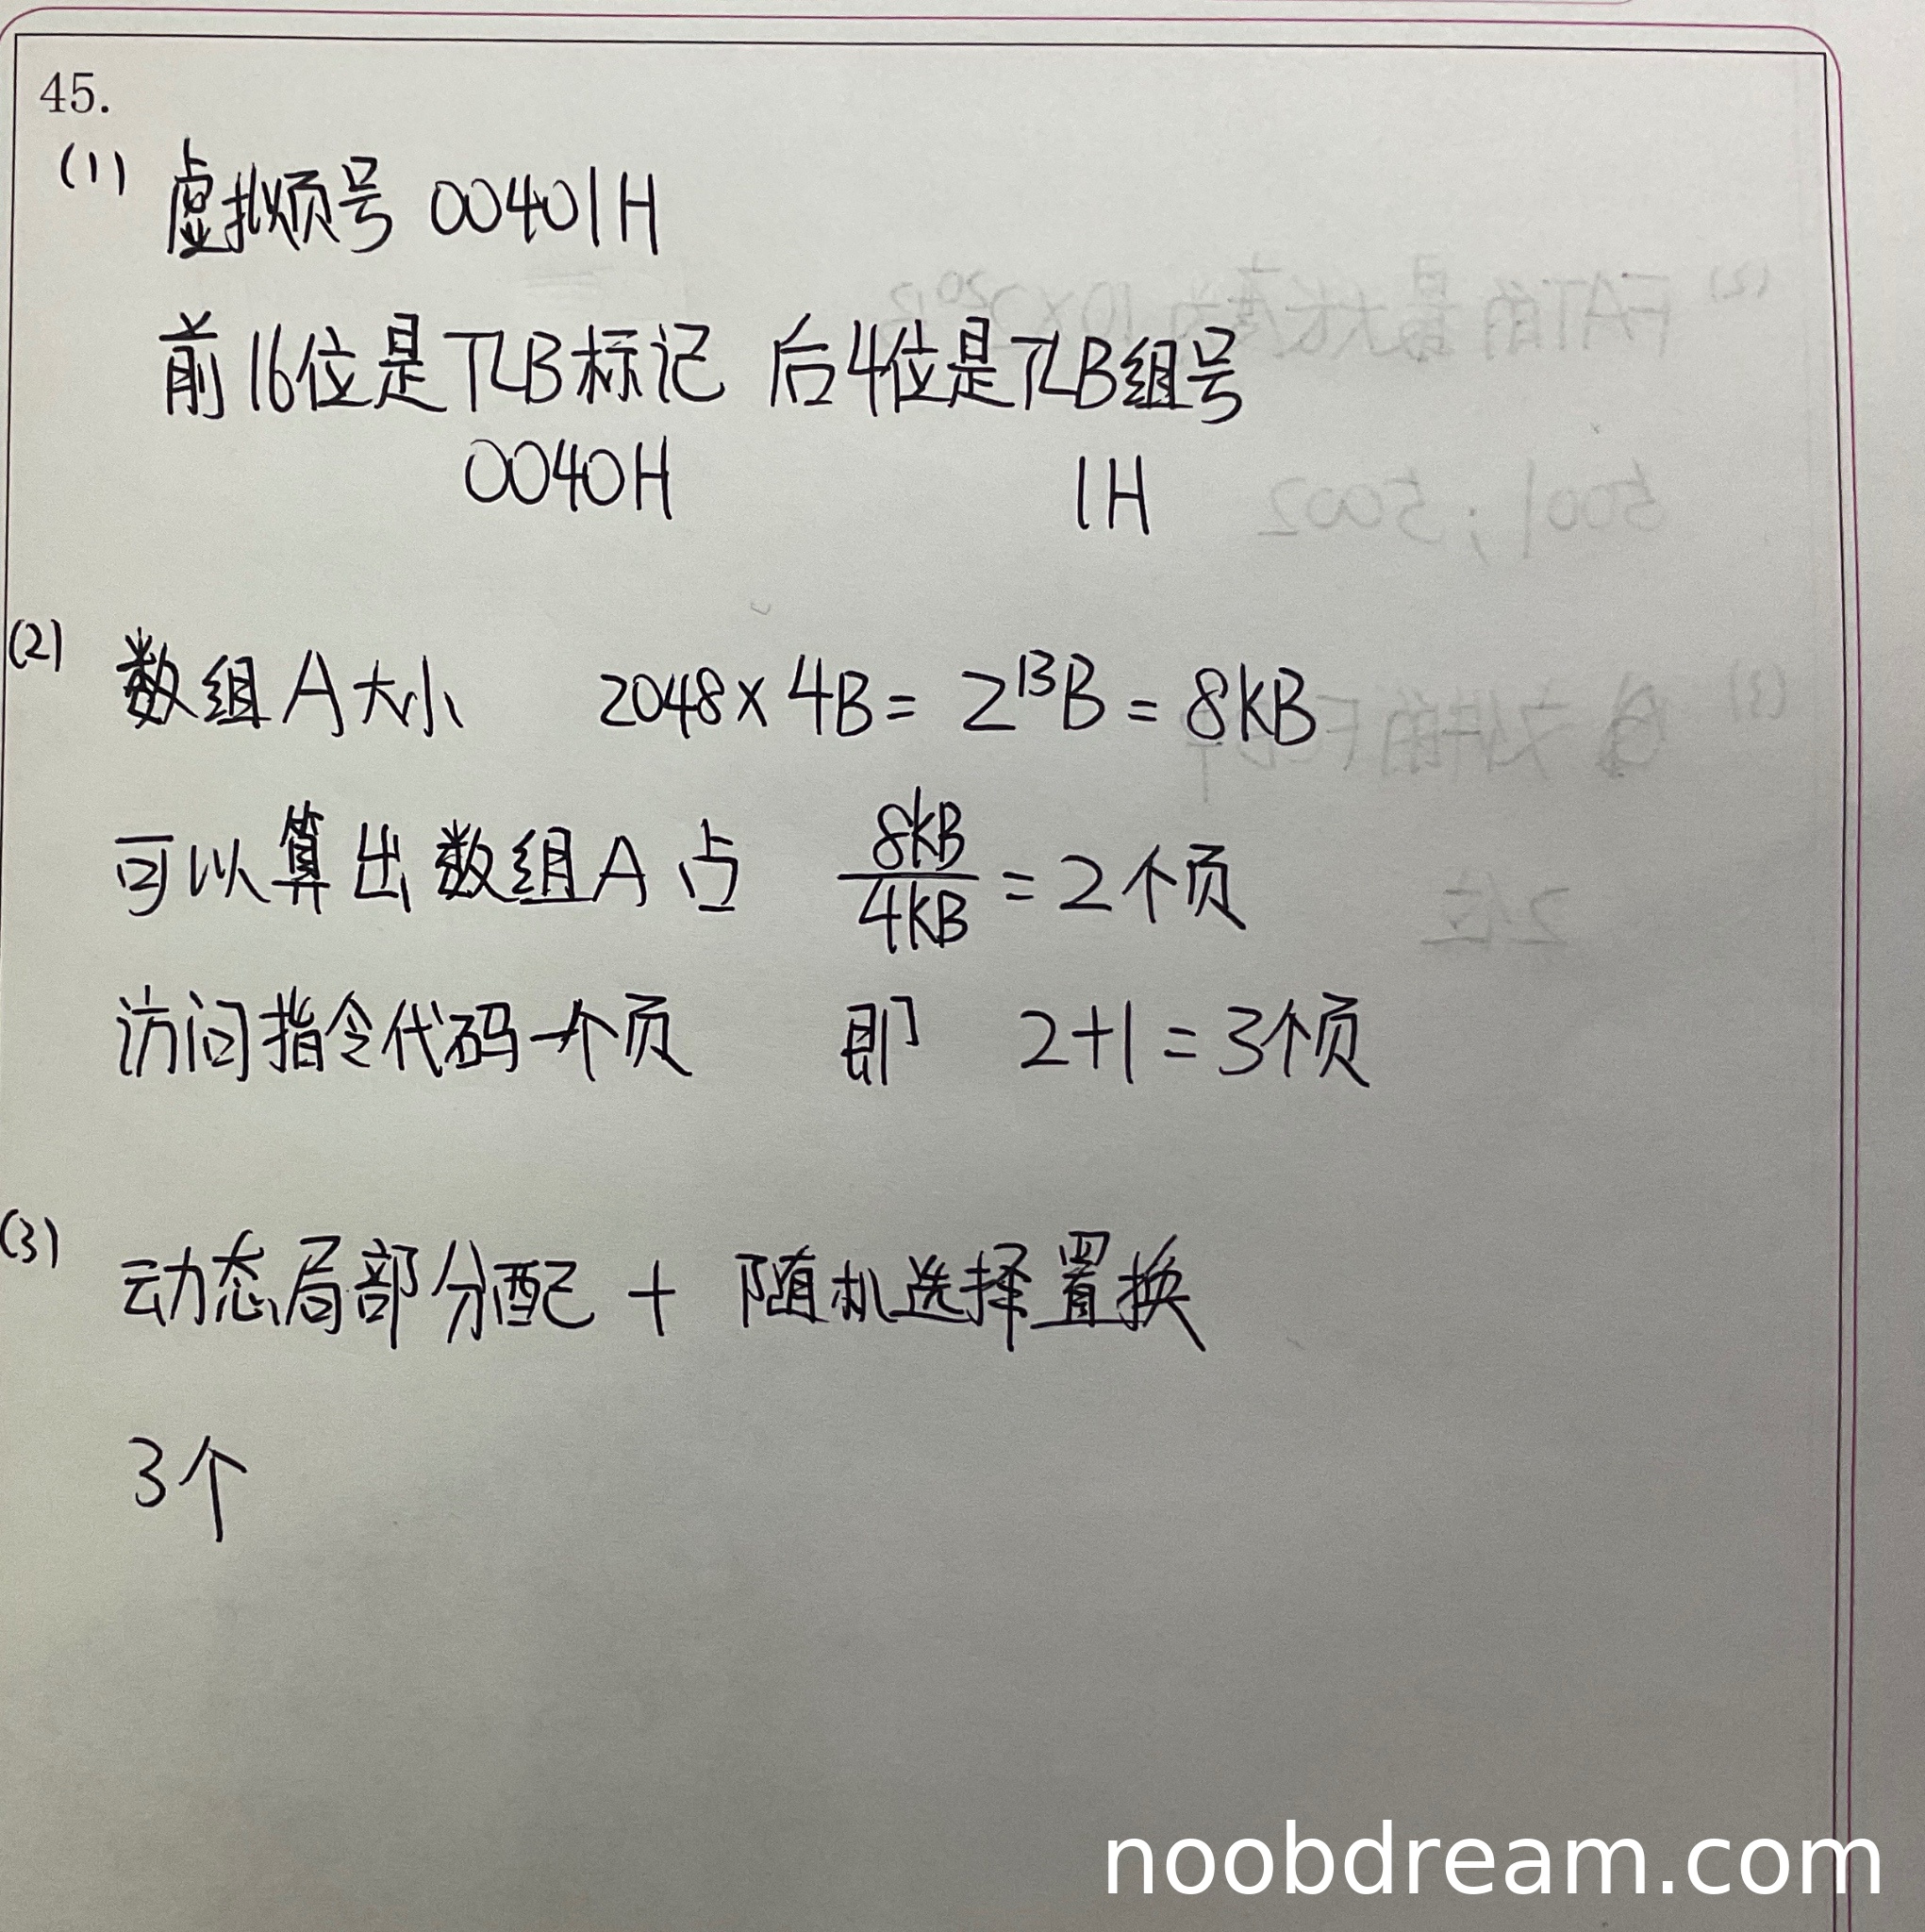 45.
(1) 虚拟页号 00401H
前16位是TLB标记 后4位是TLB组号
0040H 1H
(2) 数组A大小 2048×4B = 2¹³B = 8KB
可以算出数组A占 8KB/4KB = 2个页
访问指令代码一个页 即 2+1=3个页
(3) 动态局部分配 + 随机选择置换
3个
noobdream.com